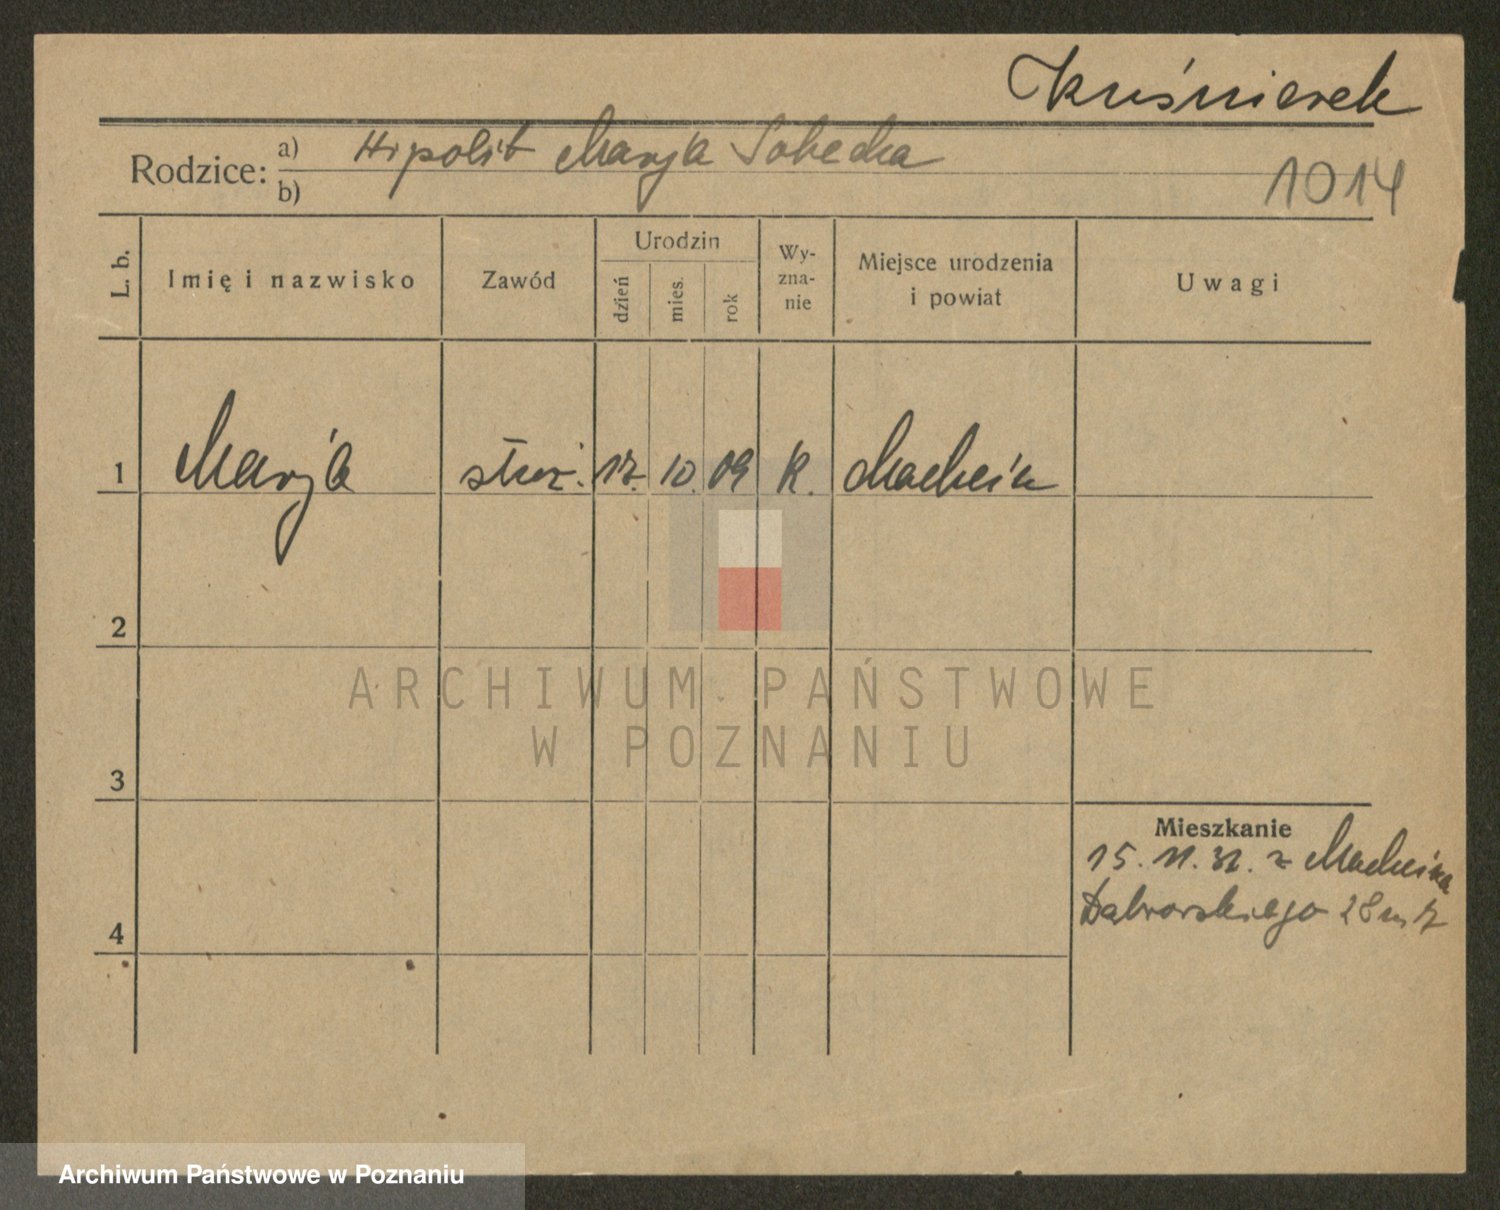 Kuśnierek
Rodzice: a) Hipolit Maryja Sobecka
b)
1014
L. b.
Imię i nazwisko
Zawód
Urodzin
dzień
mies.
rok
Wy-
zna-
nie
Miejsce urodzenia
i powiat
Uwagi
1 Maryja służ. 17. 10. 09 K. Machcin
2
3
4
Mieszkanie
15. 11. 32. z Machcina
Dąbrowskiego 28 m 7
ARCHIWUM PAŃSTWOWE
W POZNANIU
Archiwum Państwowe w Poznaniu